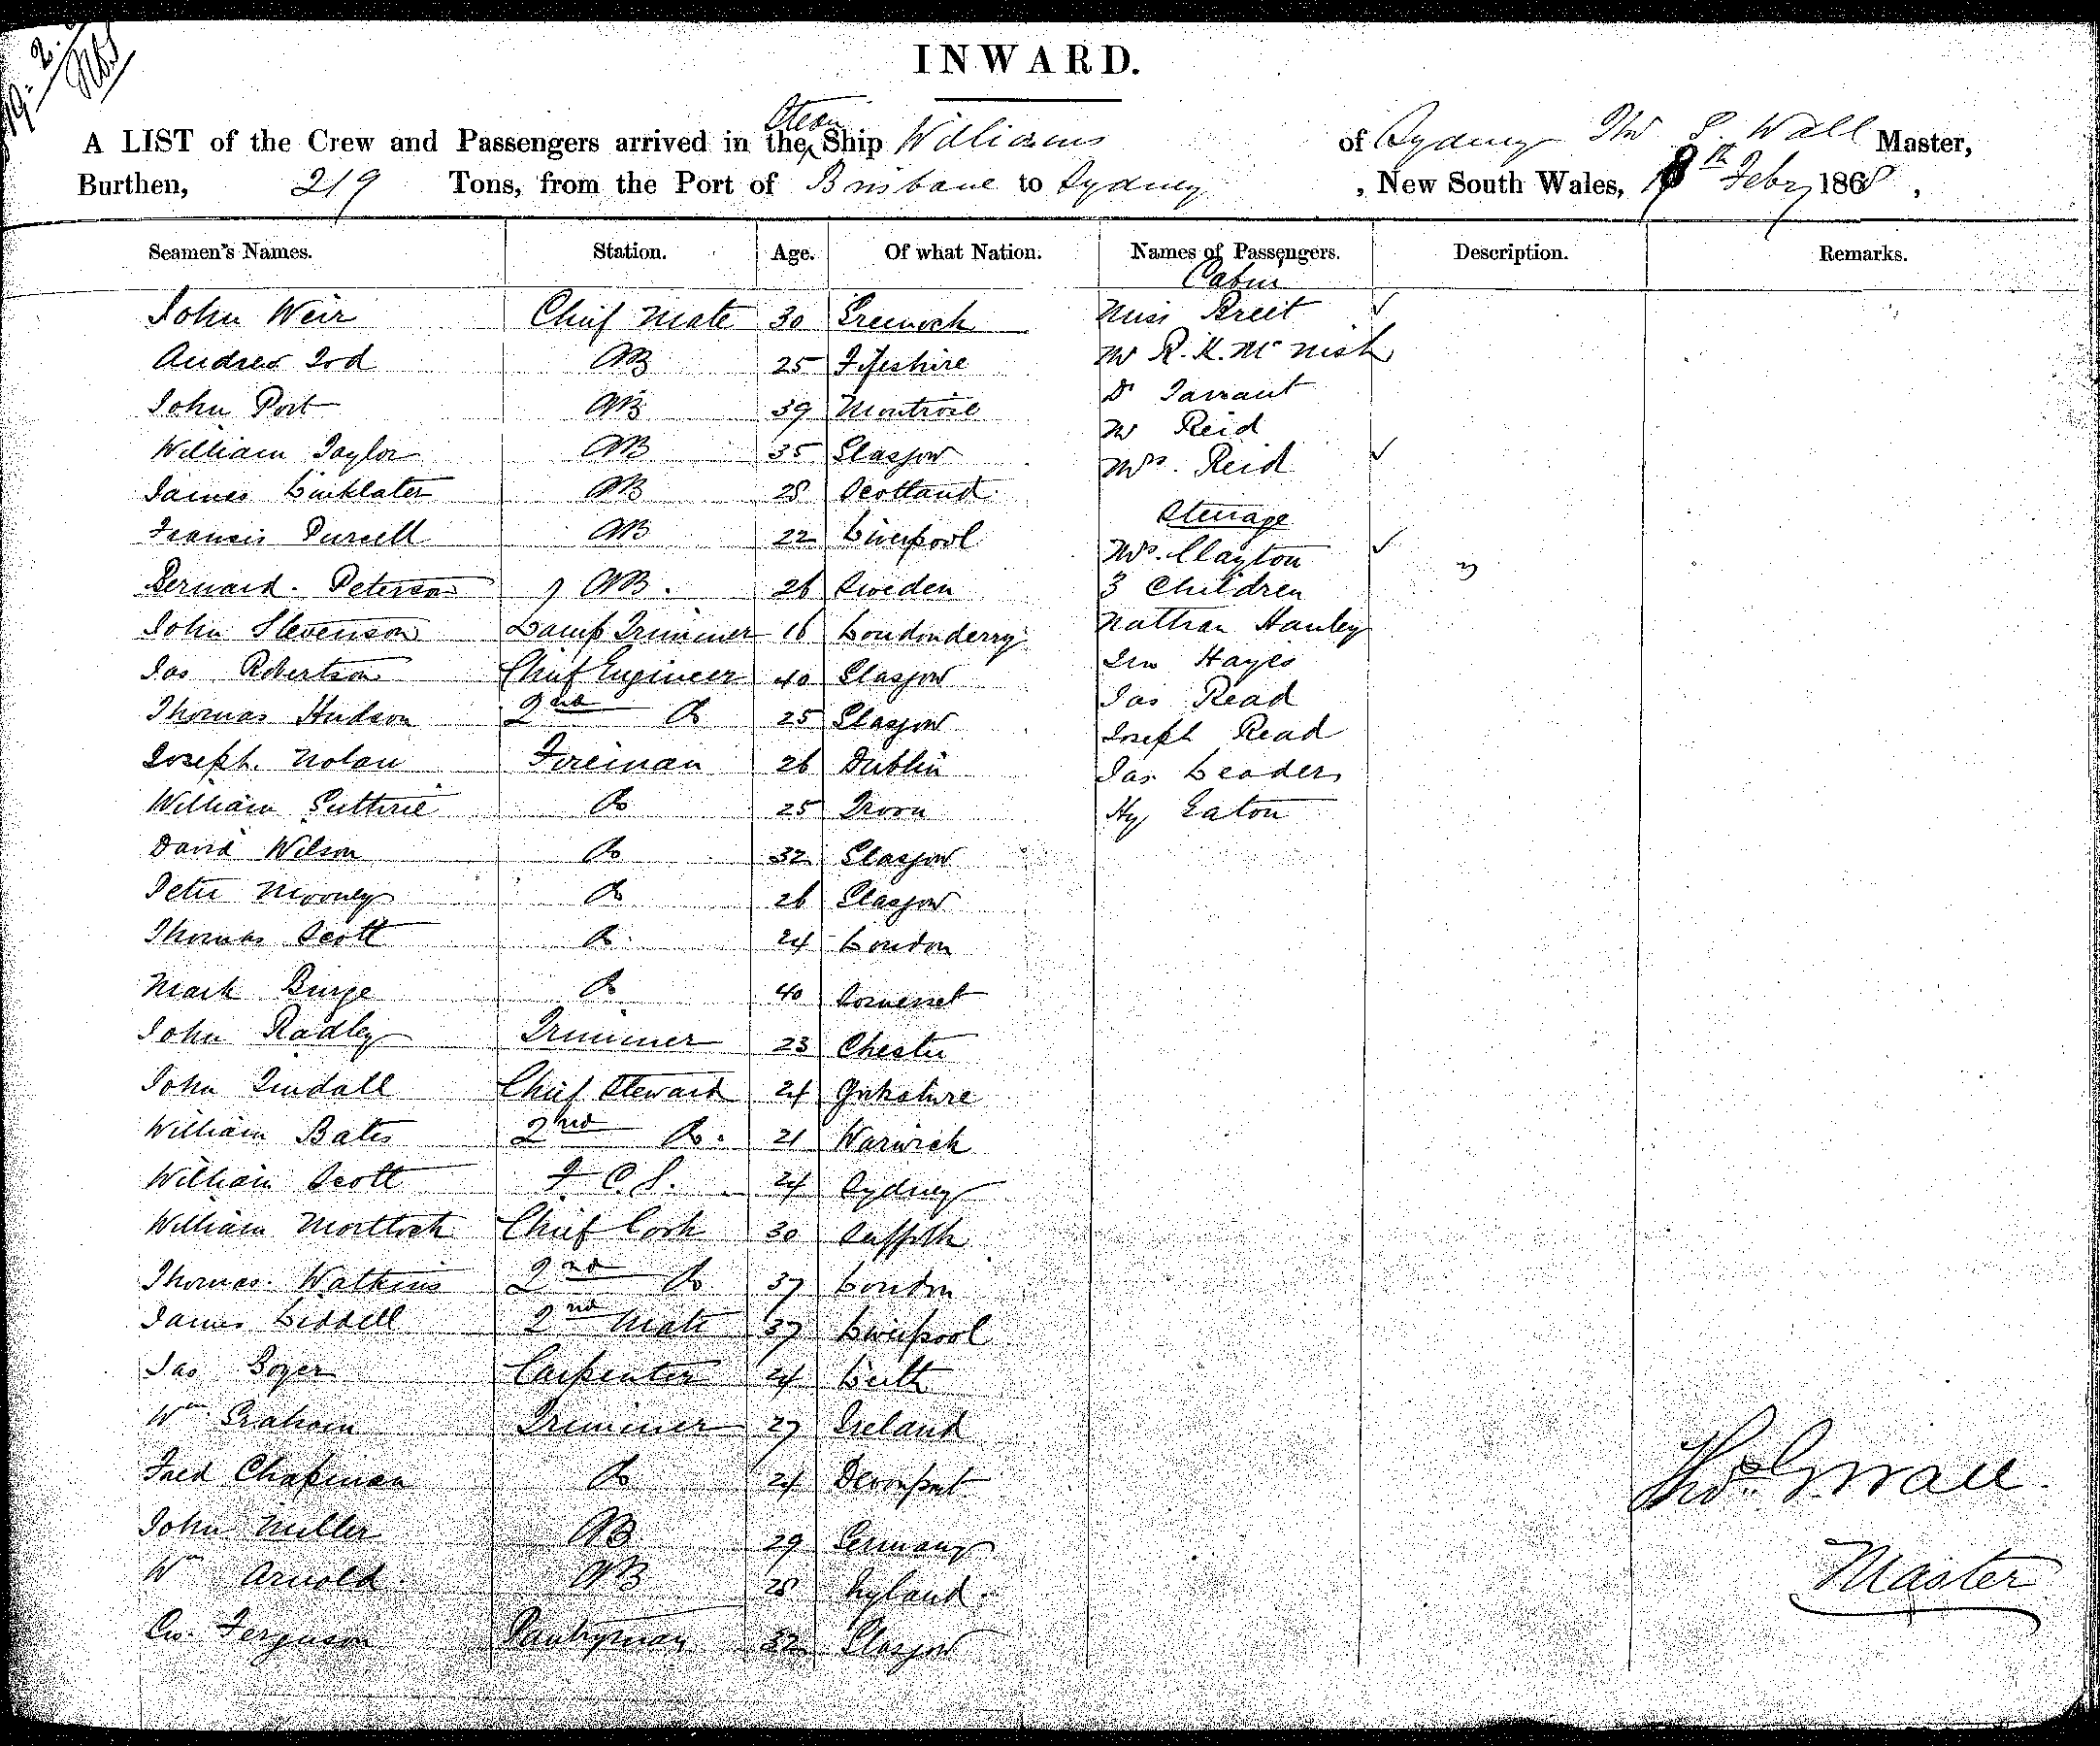 INWARD.
A LIST of the Crew and Passengers arrived in the Steam Ship Williams of Sydney Thos G. Wall Master,
Burthen, 219 Tons, from the Port of Brisbane to Sydney, New South Wales, 18th Feby 1868,
Seamen's Names. Station. Age. Of what Nation. Names of Passengers. Description. Remarks.
Cabin
John Weir Chief Mate 30 Greenock Miss Breit
Andrew Tod AB 25 Fifeshire Mr R. K. McNish
John Port AB 39 Montrose Dr Tarrant
Mr Reid
William Taylor AB 35 Glasgow Mrs. Reid
James Linklater AB 28 Scotland
Steerage
Francis Purcell AB 22 Liverpool Mrs. Clayton
Bernard Peterson AB 26 Sweden 3 Children
John Stevenson Lamp Trimmer 16 Londonderry Nathan Hanley
Jas Robertson Chief Engineer 40 Glasgow Hayes
Thomas Hudson 2nd Do 25 Glasgow Jas Read
Joseph Read
Joseph Nolan Fireman 26 Dublin Jas Leaders
William Guthrie Do 25 Troon Hy Eaton
David Wilson Do 32 Glasgow
Peter Mooney Do 26 Glasgow
Thomas Scott Do 24 London
Mark Burge Do 40 Somerset
John Radley Trimmer 23 Chester
John Tindall Chief Steward 24 Yorkshire
William Bates 2nd Do. 21 Warwick
William Scott F C.S. 24 Sydney
William Mortlock Chief Cook 30 Suffolk
Thomas Watkins 2nd Do 37 London
James Liddell 2nd Mate 37 Liverpool
Jas Boyer Carpenter 24 Leith
Wm Graham Trimmer 27 Ireland
Fred Chapman Do 24 Devonport
John Miller AB 29 Germany
Wm Arnold AB 28 England
Ferguson Pantryman 32 Glasgow
Thos G Wall
Master